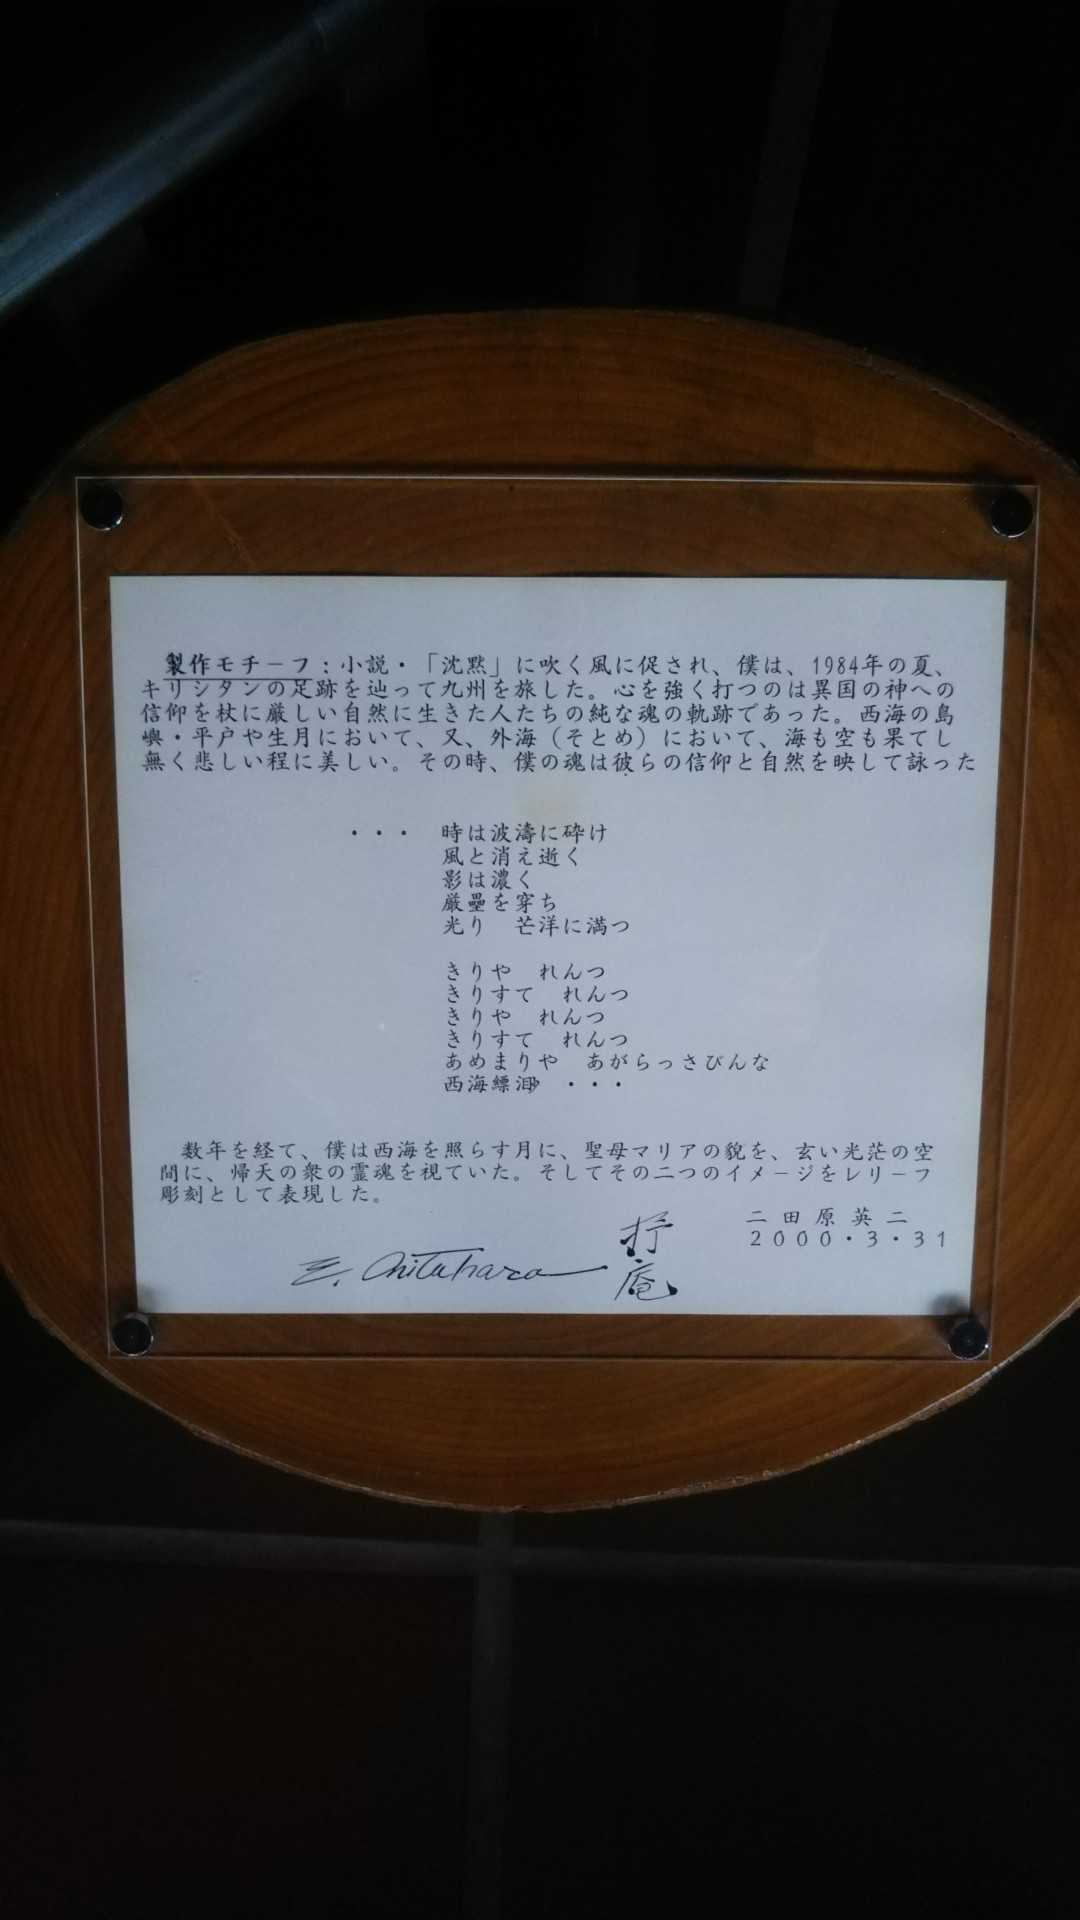 製作モチーフ：小説・「沈黙」に吹く風に促され、僕は、1984年の夏、
キリシタンの足跡を辿って九州を旅した。心を強く打つのは異国の神への
信仰を杖に厳しい自然に生きた人たちの純な魂の軌跡であった。西海の島
嶼・平戸や生月において、又、外海（そとめ）において、海も空も果てし
無く悲しい程に美しい。その時、僕の魂は彼らの信仰と自然を映して詠った
・・・　時は波濤に砕け
風と消え逝く
影は濃く
厳壘を穿ち
光り　芒洋に満つ
きりや　れんつ
きりすて　れんつ
きりや　れんつ
きりすて　れんつ
あめまりや　あがらっさびんな
西海縹渺　・・・
数年を経て、僕は西海を照らす月に、聖母マリアの貌を、玄い光茫の空
間に、帰天の衆の霊魂を視ていた。そしてその二つのイメージをレリーフ
彫刻として表現した。
二田原英二
2000・3・31
E. Nitahara
庵